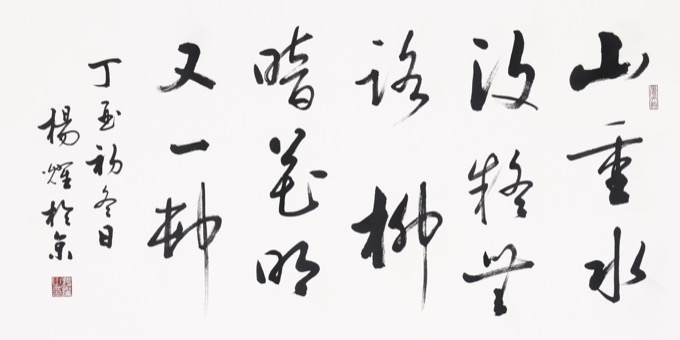 山重水
復疑無
路柳
暗花明
又一邨
丁亥初冬日
楊耀於京